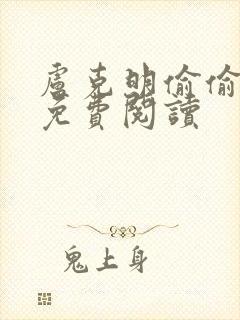 盧克明偷偷
免費閱讀
鬼上身